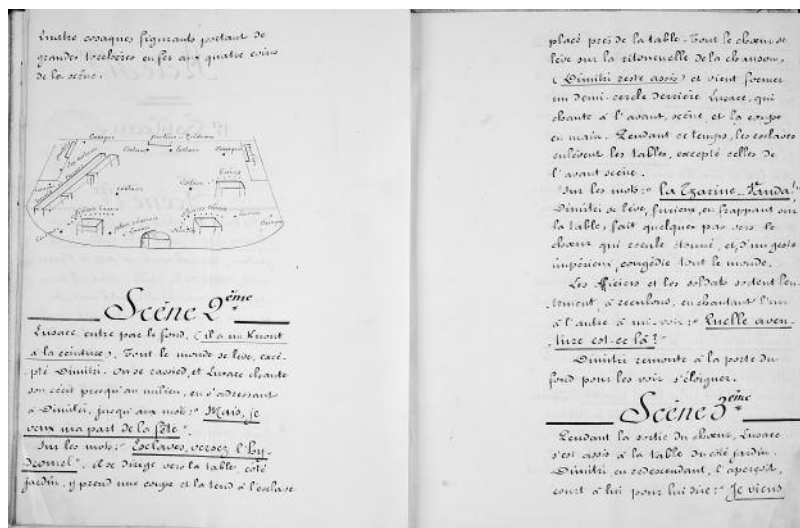 Quatre cosaques figurants portant de
grandes torchères en fer aux quatre coins
de la scène.
Cosaque
Esclaves
Esclaves
Cosaque
esclaves
Scène 2ème
Lusace entre par le fond, (il a un Knout
à la ceinture). Tout le monde se lève, exce-
pté Dimitri. On se rassied, et Lusace chante
son récit presqu'au milieu, en s'adressant
à Dimitri, jusqu'aux mots: "Mais, je
veux ma part de la fête".
Sur les mots: "Esclaves, versez l'hy-
dromel". il se dirige vers la table, côté
jardin, y prend une coupe et la tend à l'esclave
placé près de la table. Tout le chœur se
lève sur la ritournelle de la chanson,
(Dimitri reste assis) et vient former
un demi-cercle derrière Lusace, qui
chante à l'avant-scène, et la coupe
en main. Pendant ce temps, les esclaves
enlèvent les tables, excepté celles de
l'avant scène.
Sur les mots: "la Tzarine Vanda!"
Dimitri se lève, furieux, en frappant sur
la table, fait quelques pas vers le
chœur qui recule étonné, et, d'un geste
impérieux, congédie tout le monde.
Les officiers et les soldats sortent len-
tement, à reculons, en chantant l'un
à l'autre à mi-voix: "Quelle aven-
ture est-ce là?"
Dimitri remonte à la porte du
fond pour les voir s'éloigner.
Scène 3ème
Pendant la sortie du chœur, Lusace
s'est assis à la table du côté jardin.
Dimitri en redescendant, l'aperçoit,
court à lui pour lui dire: "Je viens